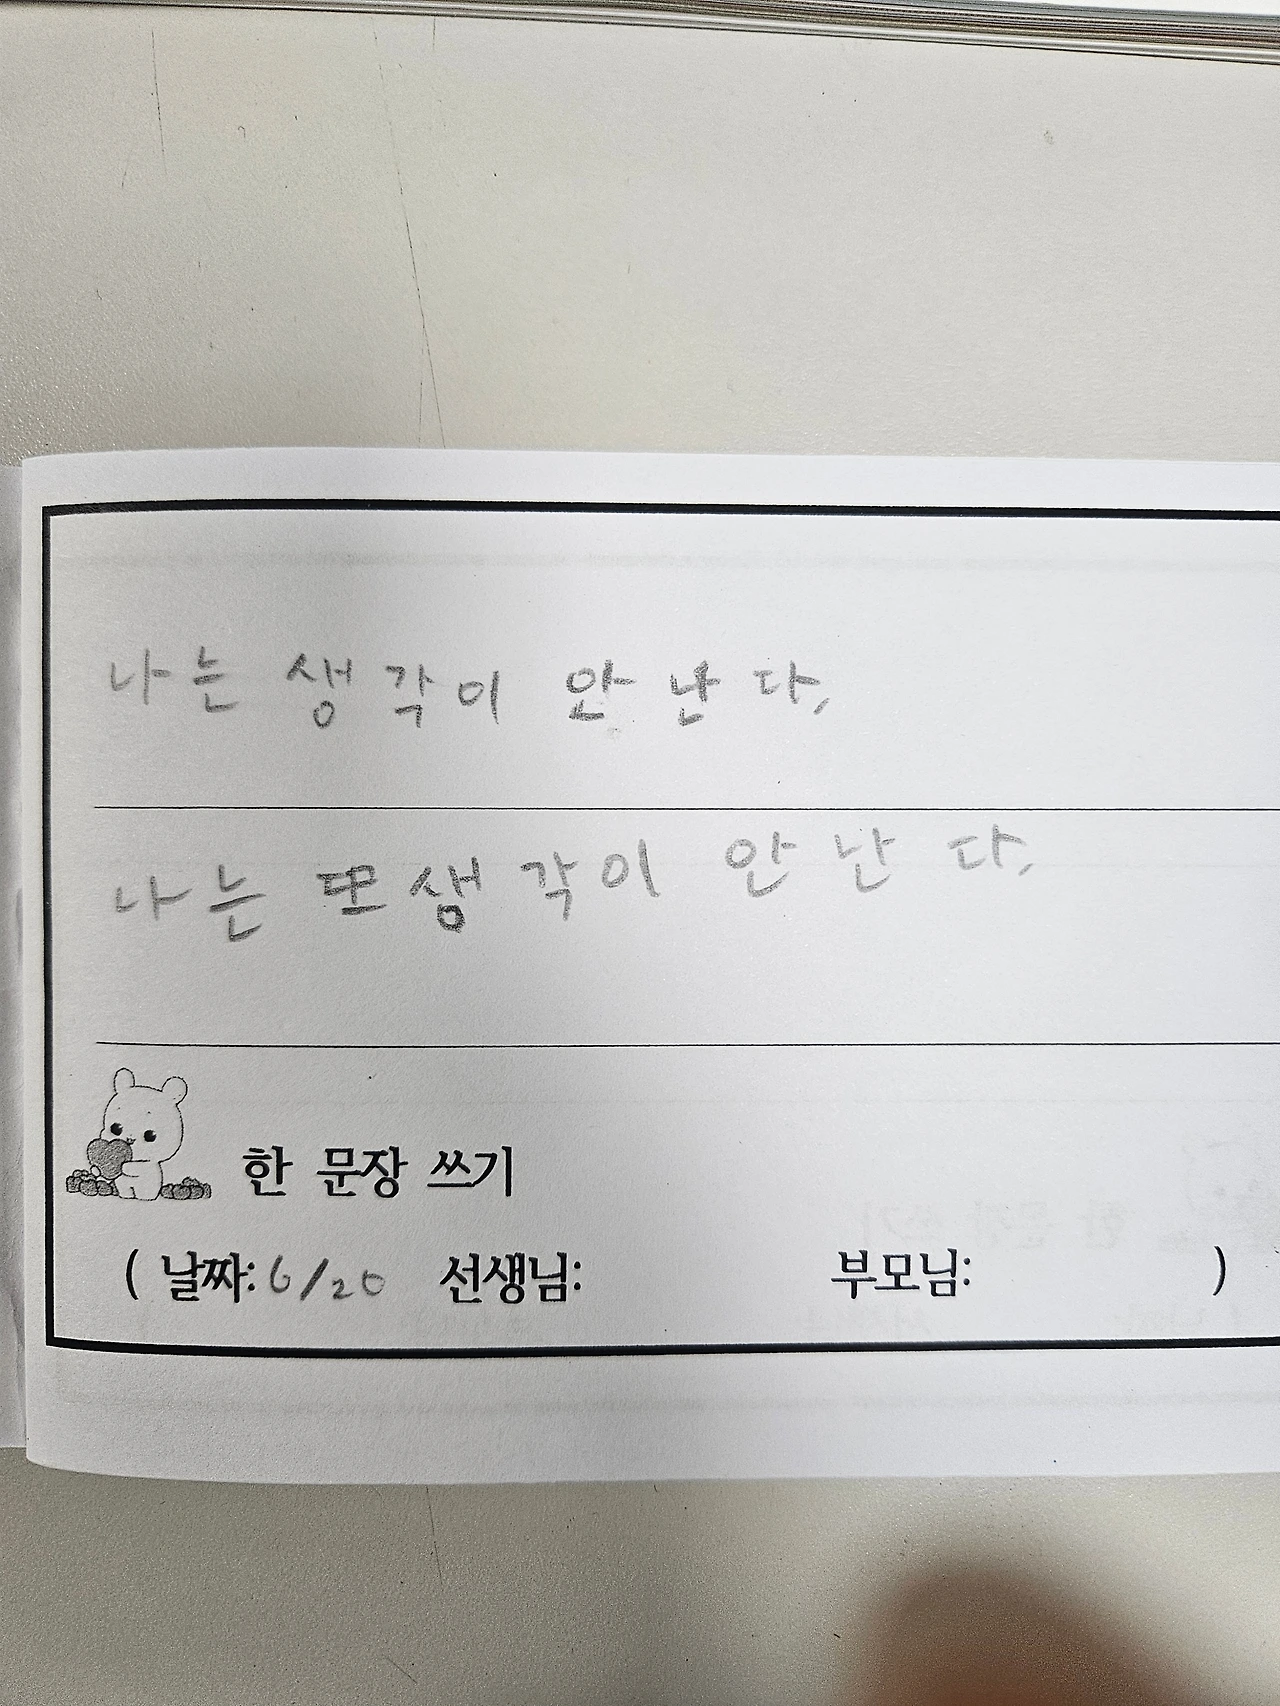 나는 생각이 안 난다,
나는 또 생각이 안 난 다,
한 문장 쓰기
( 날짜: 6/20 선생님: 부모님: )